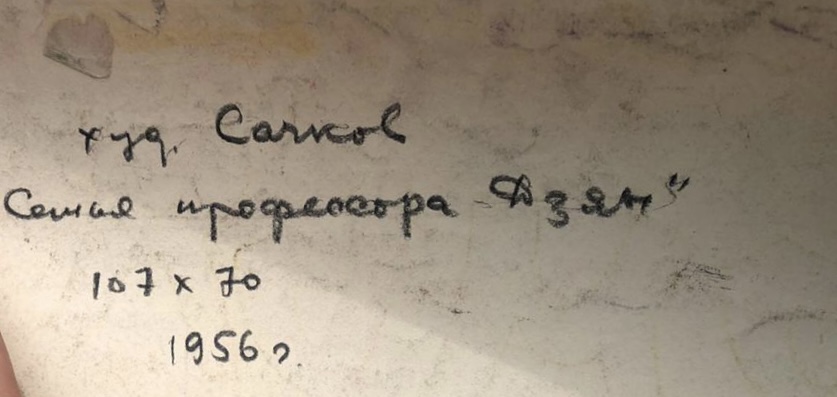 худ. Сачков
Семья профессора Дзян"
107 х 70
1956 г